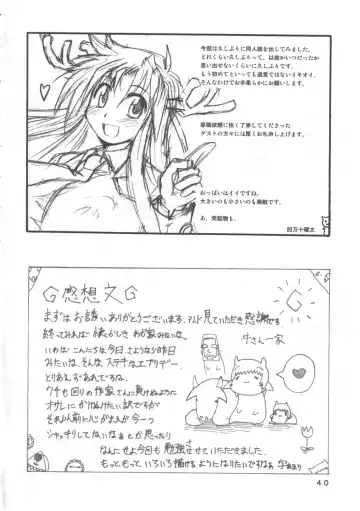 今回は久しぶりに同人誌を出してみました。
どれくらい久しぶりって、以前がいつだったか
思い出せないくらいに久しぶりです。
もう初めてといっても過言ではないイキオイ。
そんなわけでお手柔らかにお願いします。
原稿依頼に快く了承してくださった
ゲストの方々には厚くお礼申し上げます。
おっぱいはイイですね。
大きいのも小さいのも素敵です。
あ、突起物も。
四万十曜太
G感想文G
まずはお誘いありがとうございます、アンド見ていただき感謝です
終ってみれば懐くかしき わが家みたいな
いわば こんにちは今日、さようなら昨日
みたいな、そんな ステキなエブリデー
とりあえずあれですね、
ウチも回りの作家さんに負けぬように
オサレにかけぬけたい訳ですが
それ以前に心がまえが今一つ
シャッキリしてないなぁ とか思ったり
なんにせよ今日も勉強させていただきました
もっともっといろいろ描けるようになりたいですなぁ 字あまり
牛さん一家
G
40